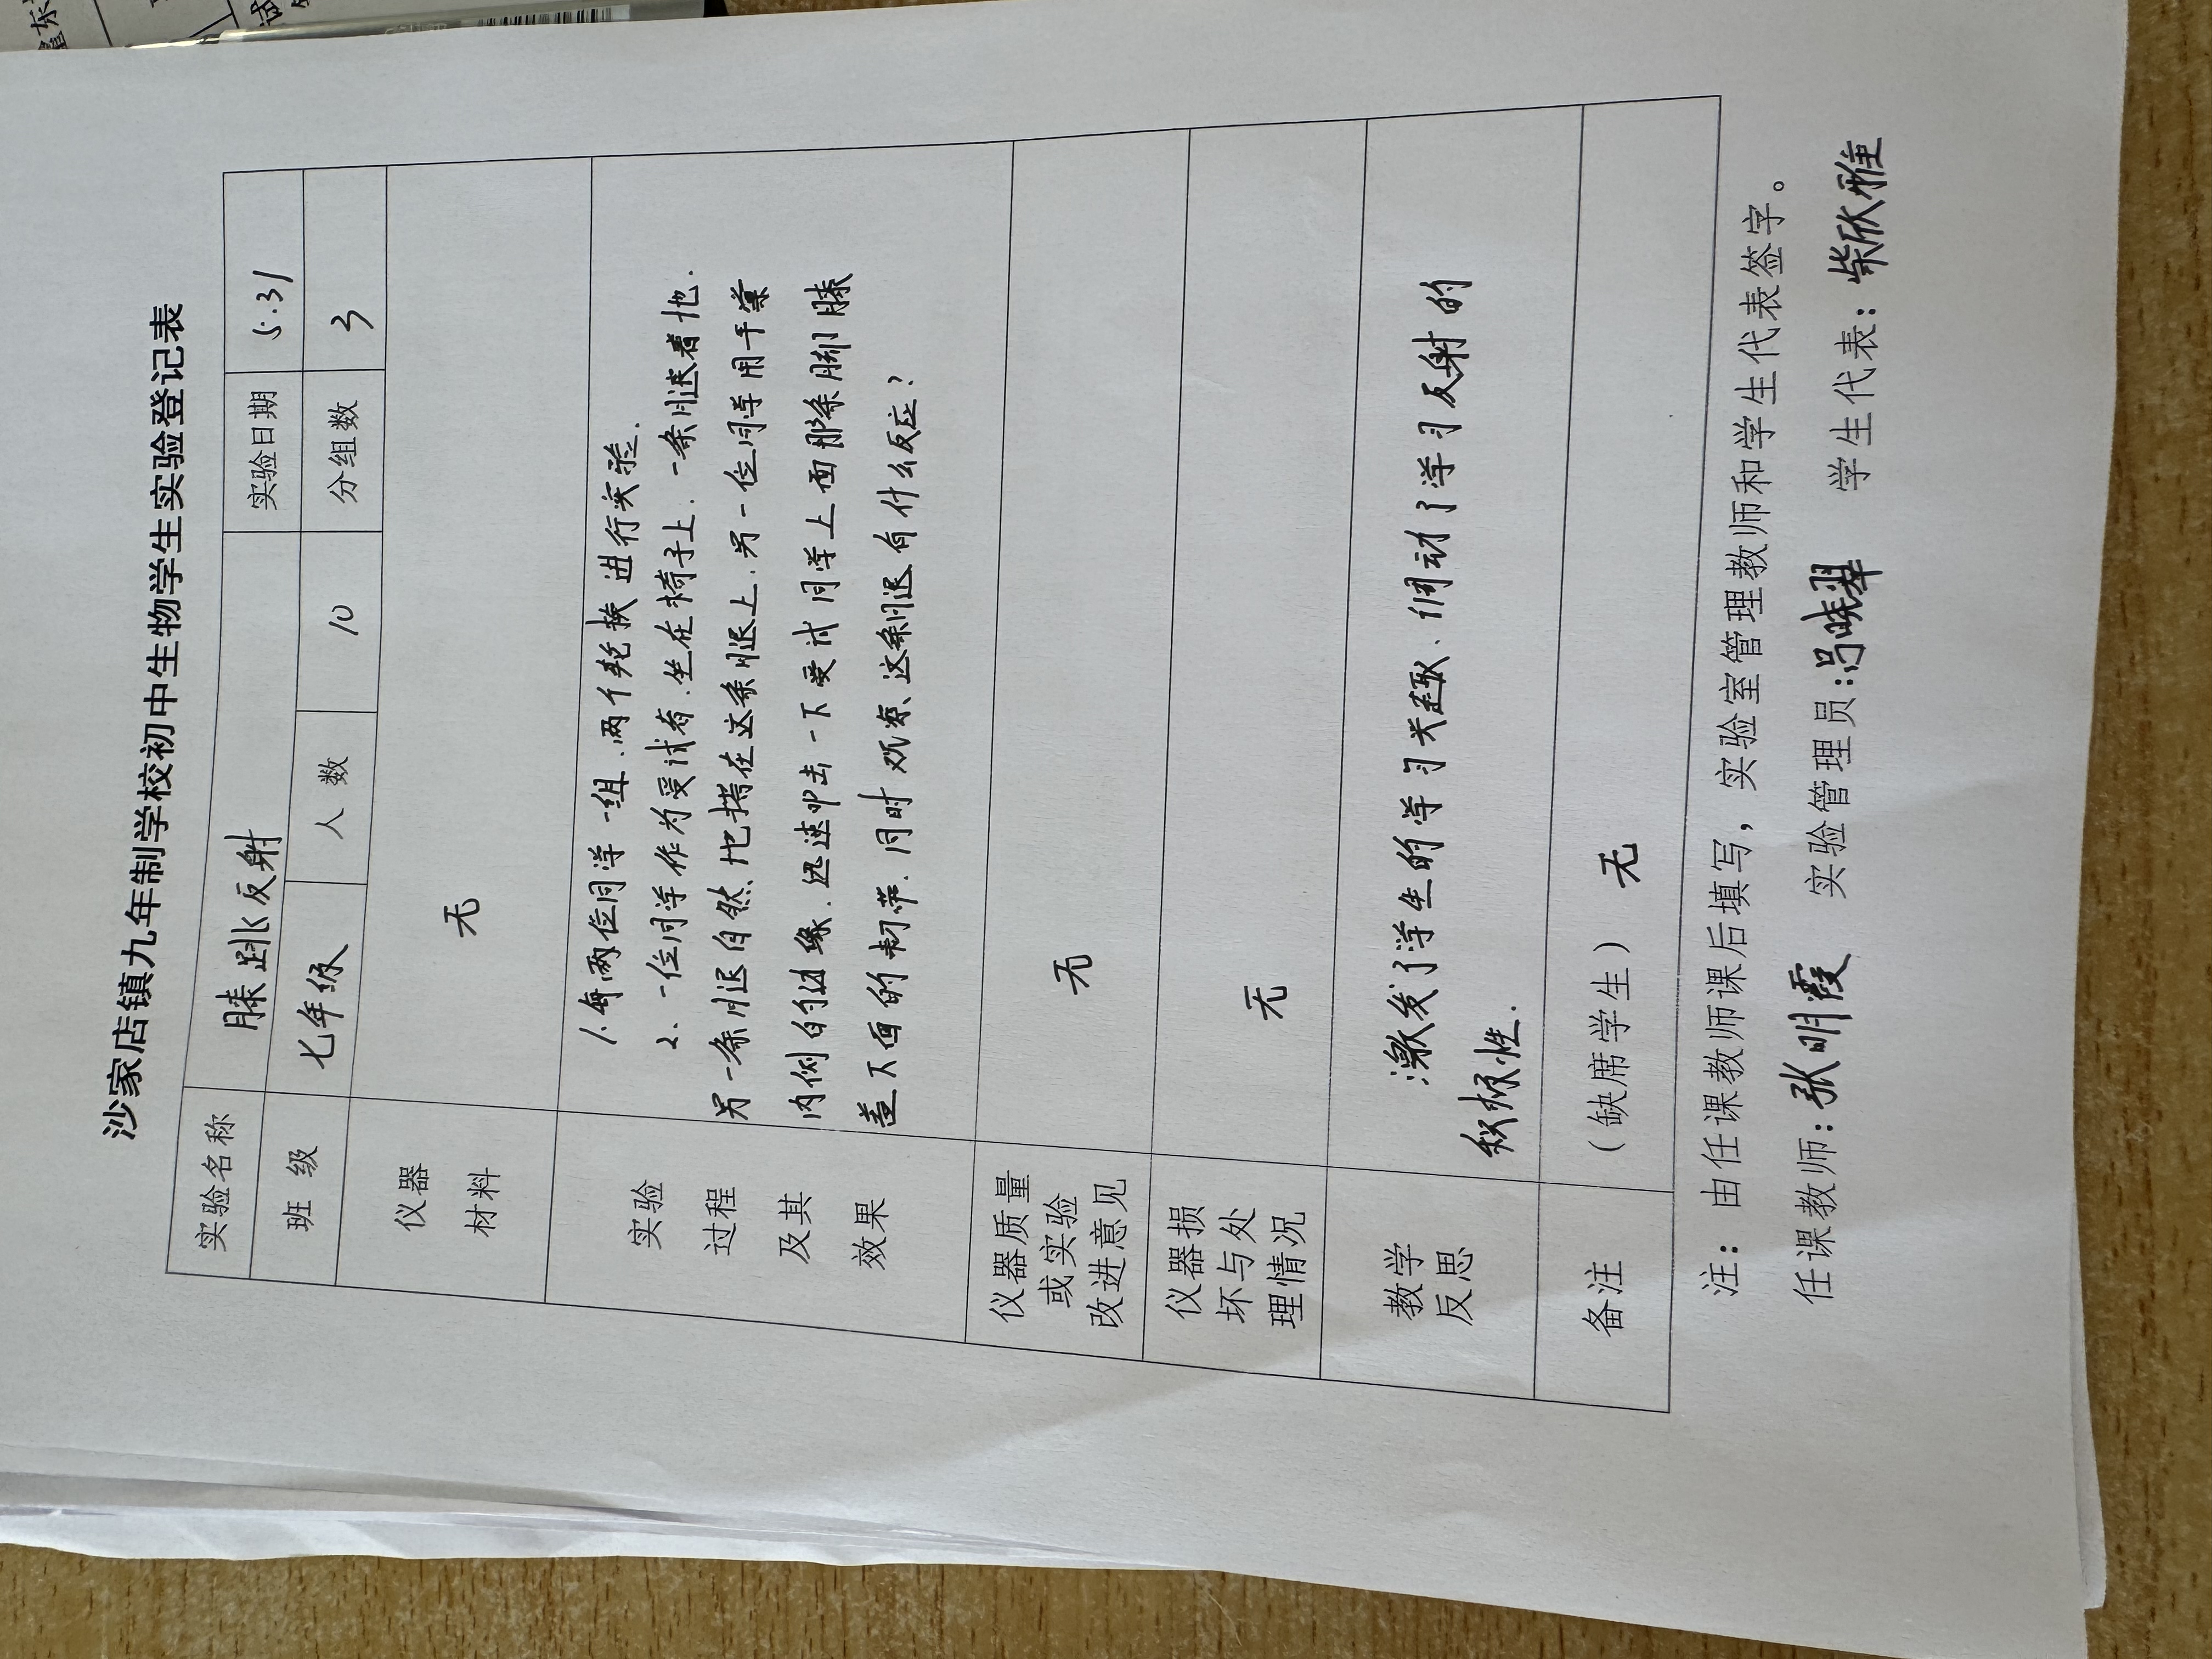 沙家店镇九年制学校初中生物学生实验登记表
实验名称 膝跳反射 实验日期 5.31
班 级 七年级 人 数 10 分组数 3
仪器
材料
无
实验
过程
及其
效果
1.每两位同学一组.两个轮换进行实验.
2、一位同学作为受试者.坐在椅子上.一条腿着地.
另一条腿自然地搭在这条腿上.另一位同学用手掌
内侧的边缘.迅速叩击一下受试同学上面那条脚膝
盖下面的韧带.同时观察这条腿有什么反应?
仪器质量
或实验
改进意见
无
仪器损
坏与处
理情况
无
教学
反思
激发了学生的学习兴趣、调动了学习反射的
积极性.
备注
（缺席学生） 无
注：由任课教师课后填写，实验室管理教师和学生代表签字。
任课教师：张明霞 实验管理员：冯晓翠 学生代表：柴欣雅